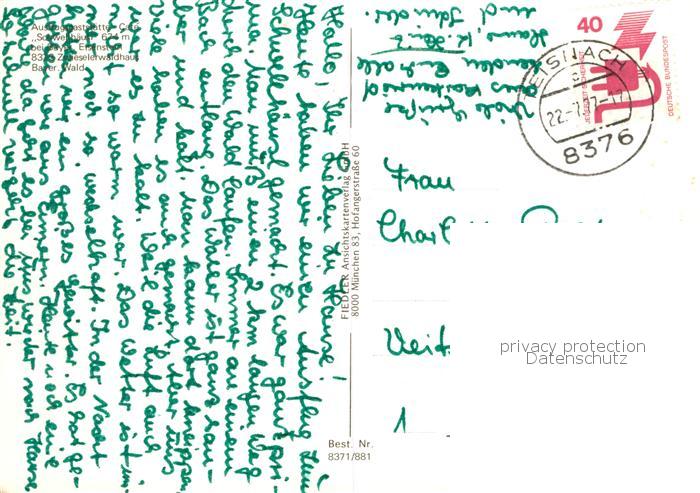 Ausflugsgaststätte - Café
„Schwellhäusl" 674 m
bei Bayer. Eisenstein
8372 Zwieselerwaldhaus
Bayer. Wald
Hallo Ihr Lieben zu Hause!
Heute haben wir einen Ausflug zum
Schwellhäusl gemacht. Es war ganz pri-
ma. Man muß einen 2 km langen Weg
durch den Wald laufen. Immer an einem
Bach entlang. Das Wasser ist ganz sau-
ber und kalt. Man kann dort kneippen
Viele haben es auch gemacht, aber uns
war es zu kalt. Weil die Luft auch
nicht so warm war. Das Wetter ist im-
mer noch so wechselhaft. In der Nacht
war ein großes Gewitter. Es hat ge-
aus Eimern. Heute noch eine
da geht es wieder nach Hause
vergeht die Zeit.
Viele Grüße
aus
senden Euch alle
Hans, K.
und Kinder
FIEDLER Ansichtskartenverlag GmbH
8000 München 83, Hofangerstraße 60
Best. Nr.
8371/881
40
JEDERZEIT SICHERHEIT
DEUTSCHE BUNDESPOST
GEISNACH
c
22.-7.77-17
8376
Frau
Charl
Veit
1
privacy protection
Datenschutz